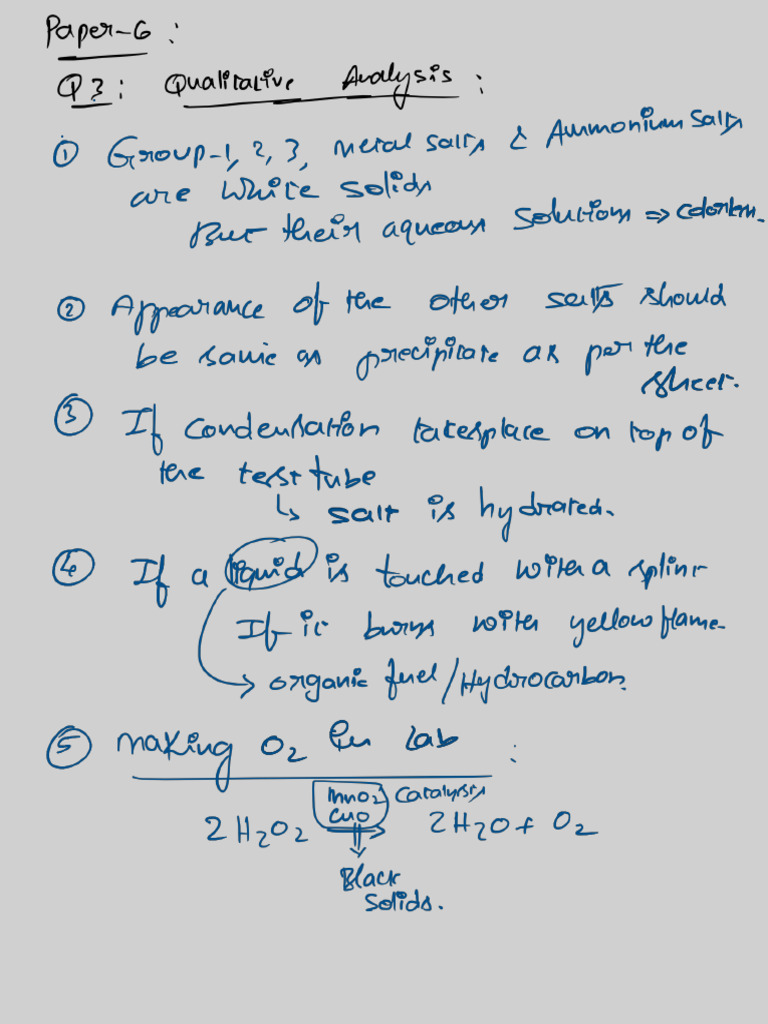 Paper-6 :
Q3: Qualitative Analysis :
① Group-1, 2, 3, metal salts & Ammonium salts
are white solids
But their aqueous solutions ⇒ colorless.
② Appearance of the other salts should
be same as precipitate as per the
sheet.
③ If condensation takesplace on top of
the test tube
↳ salt is hydrated.
④ If a liquid is touched with a splint
If it burns with yellow flame.
→ organic fuel/Hydrocarbon.
⑤ making O₂ in Lab :
MnO₂ Catalysts
2H₂O₂ CuO → 2H₂O + O₂
Black
solids.